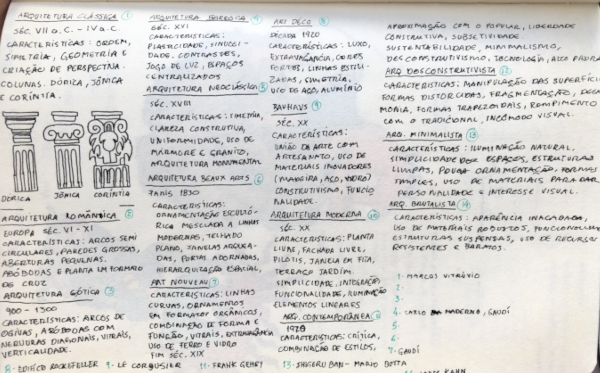 ARQUITETURA CLÁSSICA 1
SÉC. VII a.C. - IV a.C
CARACTERÍSTICAS: ORDEM,
SIMETRIA, GEOMETRIA E
CRIAÇÃO DE PERSPECTIVA.
COLUNAS. DÓRICA, JÔNICA
E CORÍNTIA.
DÓRICA JÔNICA CORÍNTIA
ARQUITETURA ROMÂNICA 2
EUROPA SÉC. VI - XI
CARACTERÍSTICAS: ARCOS SEMI
CIRCULARES, PAREDES GROSSAS,
ABERTURAS PEQUENAS.
ABÓBODAS E PLANTA EM FORMATO
DE CRUZ
ARQUITETURA GÓTICA 3
900 - 1300
CARACTERÍSTICAS: ARCOS DE
OGIVAS, ABÓBODAS COM
NERVURAS DIAGONAIS, VITRAIS,
VERTICALIDADE.
ARQUITETURA BARROCA 4
SÉC. XVI
CARACTERÍSTICAS:
PLASTICIDADE, SINUOSI-
DADE, CONTRASTES,
JOGO DE LUZ, ESPAÇOS
CENTRALIZADOS
ARQUITETURA NEOCLÁSSICA 5
SÉC. XVIII
CARACTERÍSTICAS: SIMETRIA,
CLAREZA CONSTRUTIVA,
UNIFORMIDADE, USO DE
MÁRMORE E GRANITO,
ARQUITETURA MONUMENTAL
ARQUITETURA BEAUX ARTS 6
PARIS 1830
CARACTERÍSTICAS:
ORNAMENTAÇÃO ESCULTÓ-
RICA MESCLADA A LINHAS
MODERNAS, TELHADO
PLANO, JANELAS ARQUEA-
DAS, PORTAS ADORNADAS,
HIERARQUIZAÇÃO ESPACIAL,
ART NOUVEAU 7
CARACTERÍSTICAS: LINHAS
CURVAS, ORNAMENTOS
EM FORMATOS ORGÂNICOS,
COMBINAÇÃO DE FORMA E
FUNÇÃO, VITRAIS, EXTRAVAGÂNCIA
USO DE FERRO E VIDRO
FIM SÉC. XIX
ART DECO 8
DÉCADA 1920
CARACTERÍSTICAS: LUXO,
EXTRAVAGÂNCIA, CORES
FORTES, LINHAS ESTILI-
ZADAS, SIMETRIA,
USO DE AÇO, ALUMÍNIO
BAUHAUS 9
SÉC. XX
CARACTERÍSTICAS:
UNIÃO DA ARTE COM
ARTESANATO, USO DE
MATERIAIS INOVADORES
(MADEIRA, AÇO, VIDRO)
CONSTRUTIVISMO, FUNCIO
NALIDADE.
ARQUITETURA MODERNA 10
SÉC. XX
CARACTERÍSTICAS: PLANTA
LIVRE, FACHADA LIVRE,
PILOTIS, JANELA EM FITA,
TERRAÇO JARDIM.
SIMPLICIDADE, INTEGRAÇÃO,
FUNCIONALIDADE, ILUMINAÇÃO
ELEMENTOS LINEARES
ARQ. CONTEMPORÂNEA 11
1970
CARACTERÍSTICAS: CRÍTICA,
COMBINAÇÃO DE ESTILOS,
APROXIMAÇÃO COM O POPULAR, LIBERDADE
CONSTRUTIVA, SUBJETIVIDADE
SUSTENTABILIDADE, MINIMALISMO,
DESCONSTRUTIVISMO, TECNOLOGIA, ALTO
ARQ. DESCONSTRATIVISTA 12
CARACTERÍSTICAS: MANIPULAÇÃO DAS SUPERFÍCI
FORMAS DISTORCIDAS, FRAGMENTAÇÃO,
MONIA, FORMAS TRAPEZOIDAIS, ROMPIMENTO
COM O TRADICIONAL, INCÔMODO VISUAL.
ARQ. MINIMALISTA 13
CARACTERÍSTICAS: ILUMINAÇÃO NATURAL,
SIMPLICIDADE DOS ESPAÇOS, ESTRUTURAS
LIMPAS, POUCA ORNAMENTAÇÃO, FORMAS
SIMPLES, USO DE MATERIAIS PARA DAR
PERSONALIDADE E INTERESSE VISUAL.
ARQ. BRUTALISTA 14
CARACTERÍSTICAS: APARÊNCIA INACABADA,
USO DE MATERIAIS ROBUSTOS,
ESTRUTURAS SUSPENSAS, USO DE RECURSOS
RESISTENTES E BARATOS.
1- MARCOS VITRÚVIO
2-
3-
4- MADERNO, GAUDÍ
5-
6-
7- GAUDÍ
8- EDIFÍCO ROCKEFELLER 9- LE CORBUSIER 11- FRANK GEHRY 13- SHIGERU BAN - MARIO BOTTA
KAHN